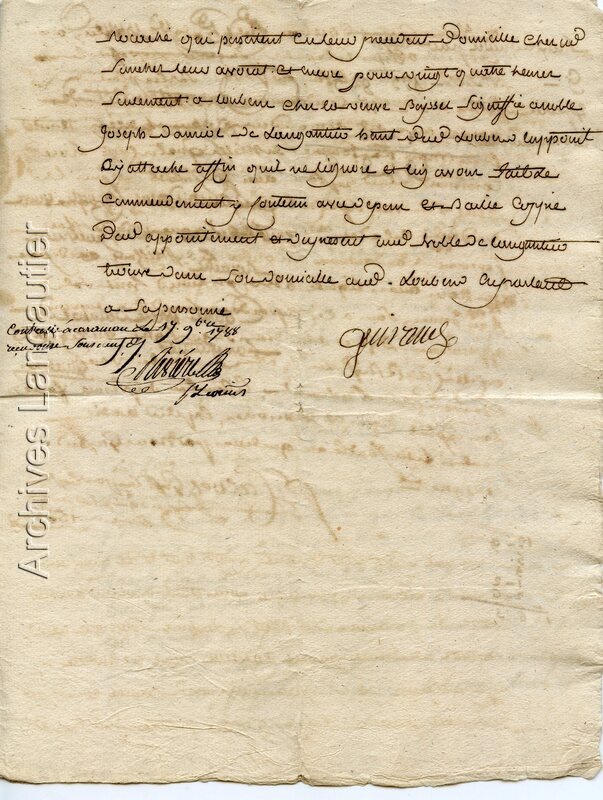 qui persistent en leur precedent domicille chez me
Sanchet leur avocat et encore pour vingt quatre heures
seulement a loubens chez la veuve signiffié a noble
Joseph Damiel de Langautier hant dud loubens lappoint
cy attache affin quil ne lignore et luy avons fait de
commendement y contenu avec depens et baillé coppie
dud appointement et du present aud noble de langautier
trouvé dans son domicille aud. Loubens en parlant
a sa personne
Controllé a caraman le 17 9bre 1788
guiraud
Archives Lanautier